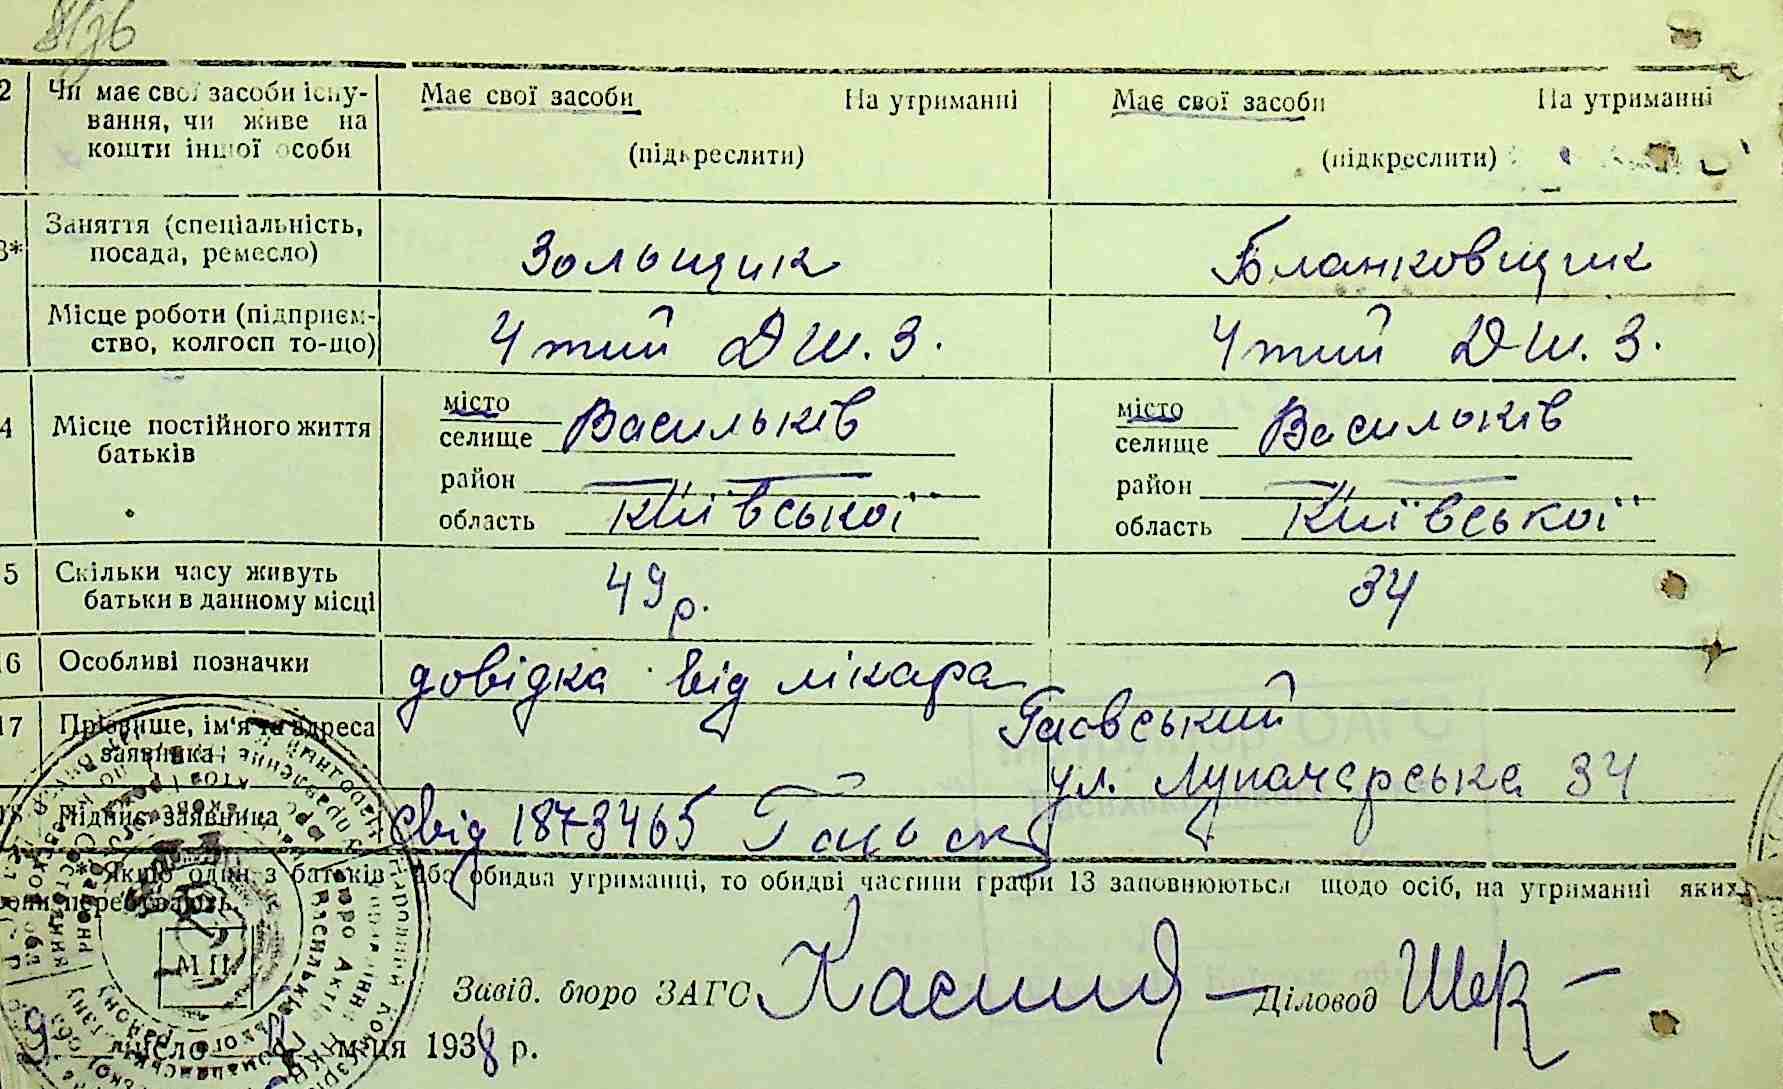 2 Чи має свої засоби існу-
вання, чи живе на
кошти іншої особи
Має свої засоби На утриманні
(підкреслити)
Має свої засоби На утриманні
(підкреслити)
3* Заняття (спеціальність,
посада, ремесло)
Зольщик
Бланковщик
Місце роботи (підприєм-
ство, колгосп то-що)
4 тий Д Ш. З.
4 тий Д Ш. З.
4 Місце постійного життя
батьків
місто
селище Васильків
район
область Київської
місто
селище Васильків
район
область Київської
5 Скільки часу живуть
батьки в данному місці
49 р.
34
16 Особливі позначки
довідка від лікара
17 Прізвище, ім'я та адреса
заявника
Гаовський
ул. Луначарська 34
18 Підпис заявника
свід 1873465
* Якщо один з батьків або обидва утриманці, то обидві частини графи 13 заповнюються щодо осіб, на утриманні яких
вони перебувають.
М П
Завід. бюро ЗАГС
Діловод
число м-ця 1938 р.